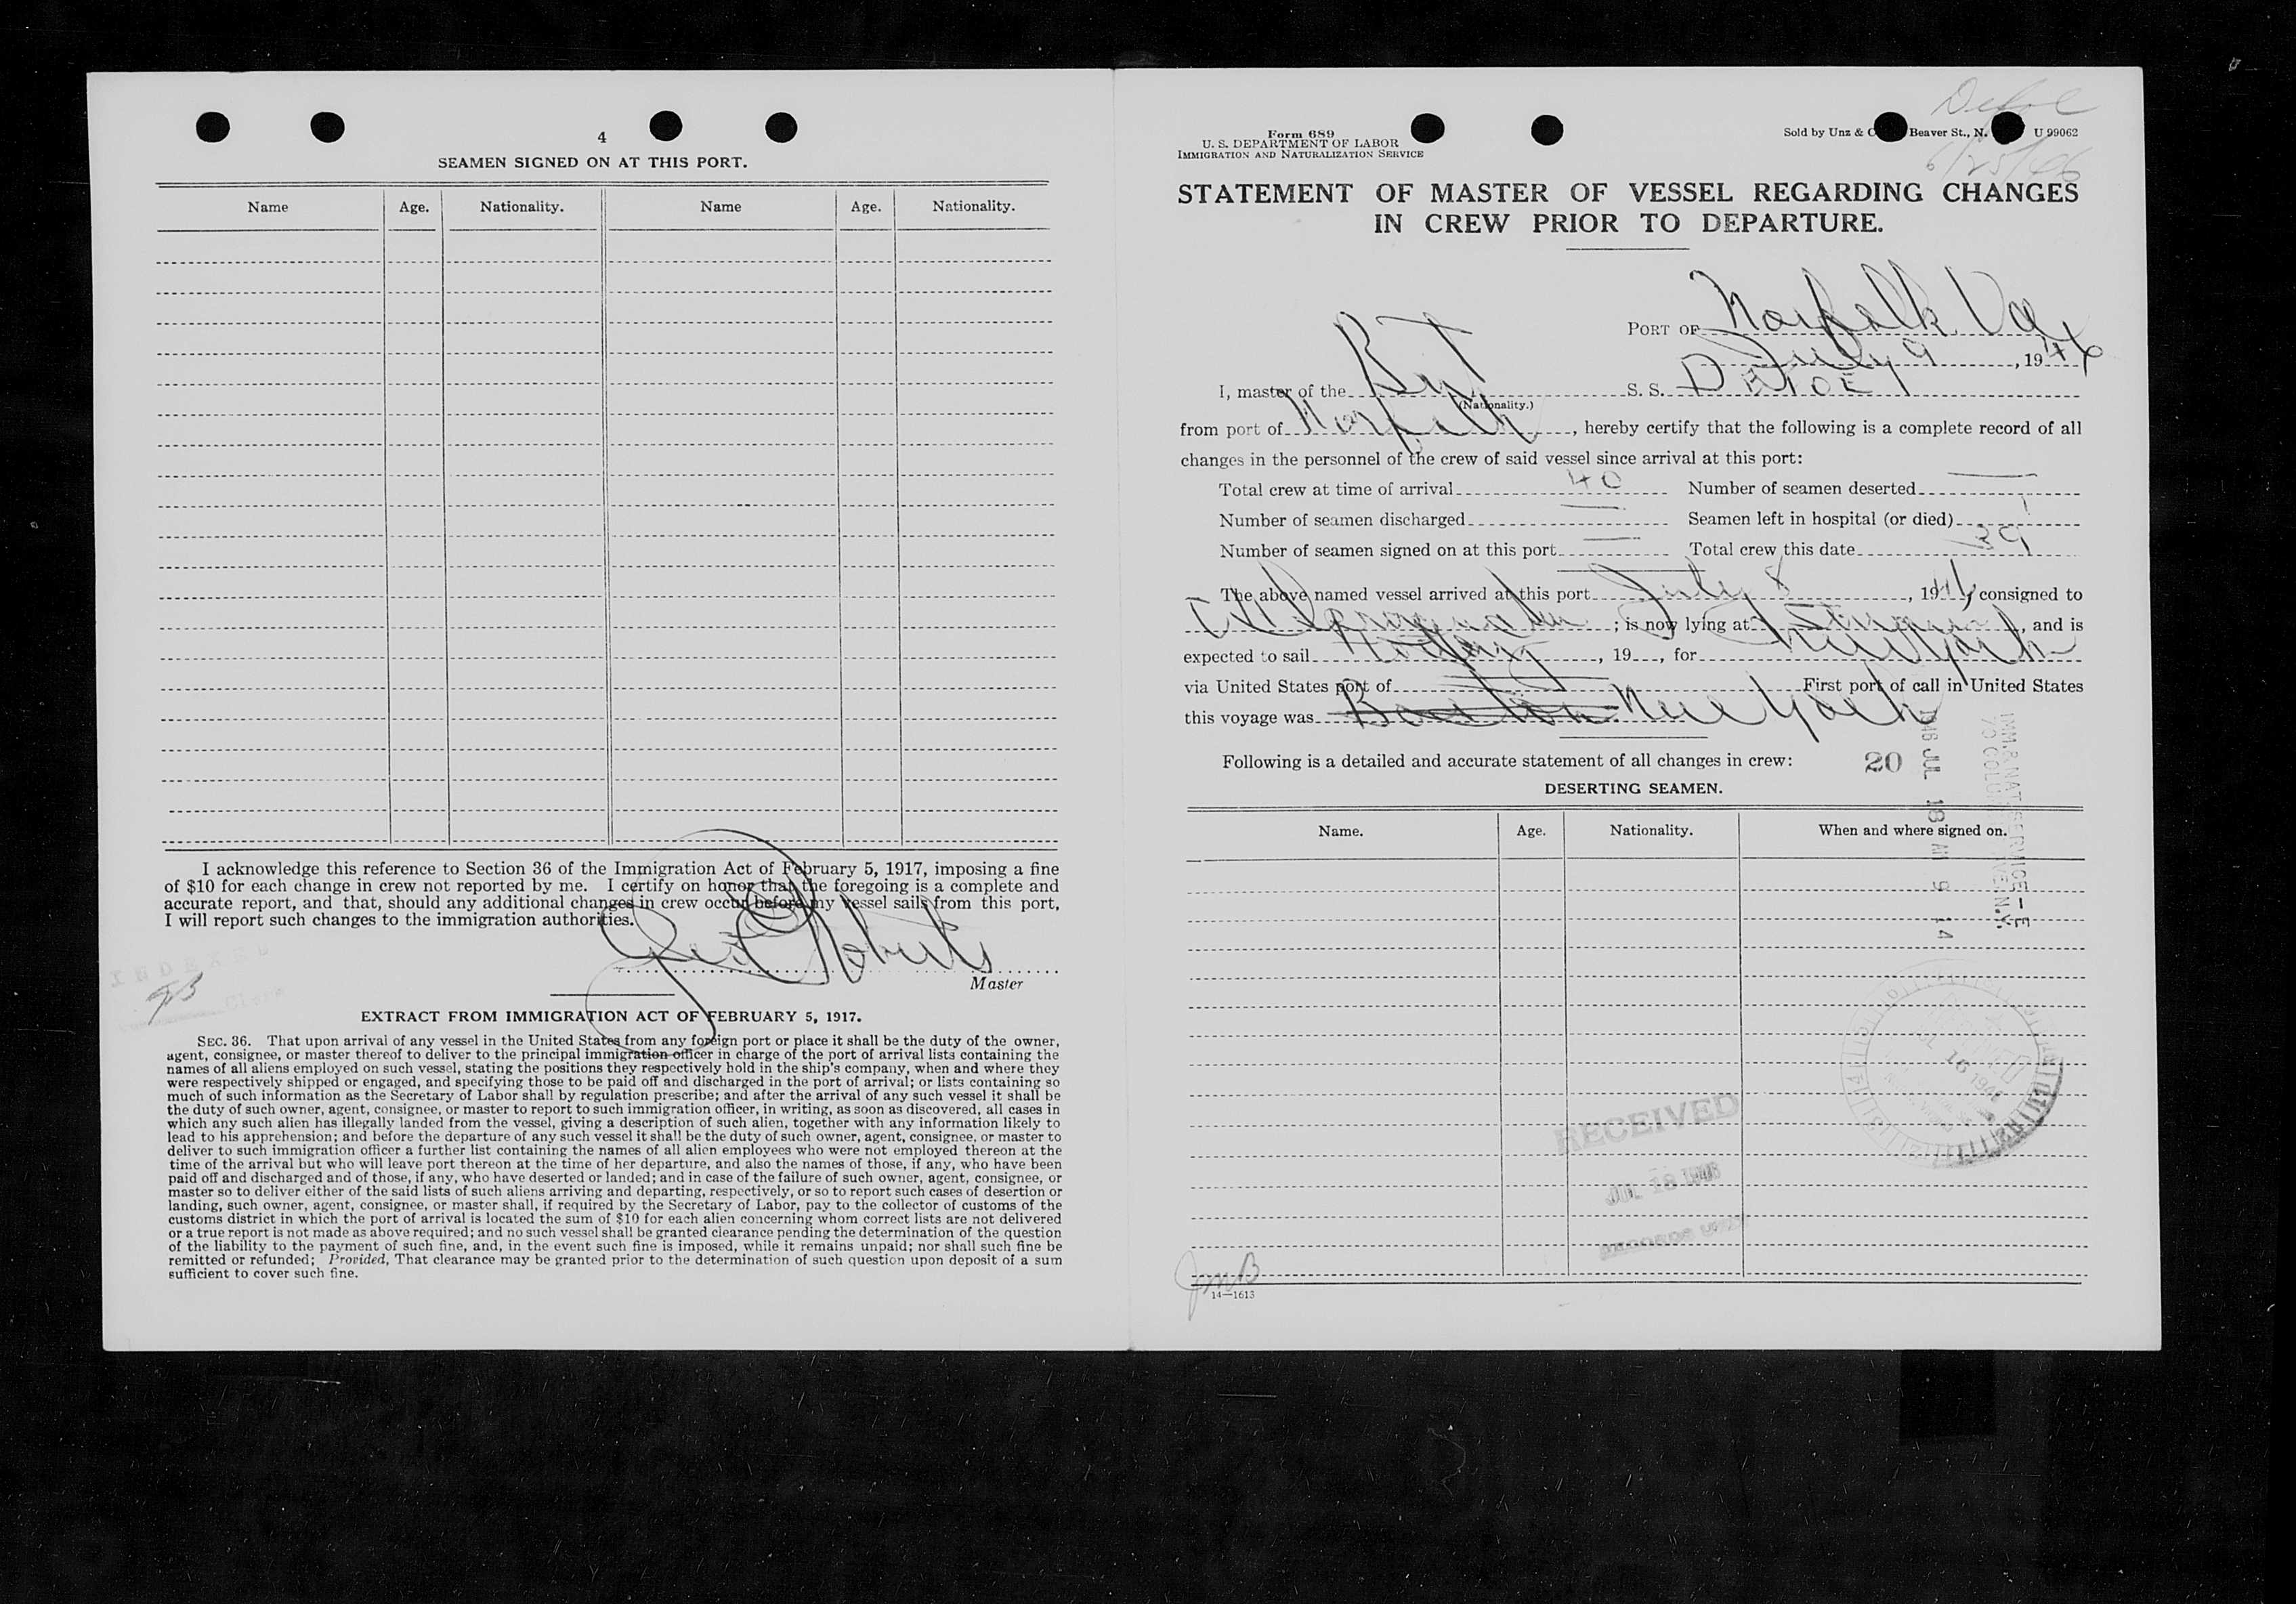 4
SEAMEN SIGNED ON AT THIS PORT.
Name Age. Nationality. Name Age. Nationality.
I acknowledge this reference to Section 36 of the Immigration Act of February 5, 1917, imposing a fine
of $10 for each change in crew not reported by me. I certify on honor that the foregoing is a complete and
accurate report, and that, should any additional changes in crew occur before my vessel sails from this port,
I will report such changes to the immigration authorities.
Roberts
Master
INDEXED
Clerk
EXTRACT FROM IMMIGRATION ACT OF FEBRUARY 5, 1917.
SEC. 36. That upon arrival of any vessel in the United States from any foreign port or place it shall be the duty of the owner,
agent, consignee, or master thereof to deliver to the principal immigration officer in charge of the port of arrival lists containing the
names of all aliens employed on such vessel, stating the positions they respectively hold in the ship's company, when and where they
were respectively shipped or engaged, and specifying those to be paid off and discharged in the port of arrival; or lists containing so
much of such information as the Secretary of Labor shall by regulation prescribe; and after the arrival of any such vessel it shall be
the duty of such owner, agent, consignee, or master to report to such immigration officer, in writing, as soon as discovered, all cases in
which any such alien has illegally landed from the vessel, giving a description of such alien, together with any information likely to
lead to his apprehension; and before the departure of any such vessel it shall be the duty of such owner, agent, consignee, or master to
deliver to such immigration officer a further list containing the names of all alien employees who were not employed thereon at the
time of the arrival but who will leave port thereon at the time of her departure, and also the names of those, if any, who have been
paid off and discharged and of those, if any, who have deserted or landed; and in case of the failure of such owner, agent, consignee, or
master so to deliver either of the said lists of such aliens arriving and departing, respectively, or so to report such cases of desertion or
landing, such owner, agent, consignee, or master shall, if required by the Secretary of Labor, pay to the collector of customs of the
customs district in which the port of arrival is located the sum of $10 for each alien concerning whom correct lists are not delivered
or a true report is not made as above required; and no such vessel shall be granted clearance pending the determination of the question
of the liability to the payment of such fine, and, in the event such fine is imposed, while it remains unpaid; nor shall such fine be
remitted or refunded; Provided, That clearance may be granted prior to the determination of such question upon deposit of a sum
sufficient to cover such fine.
Defoe
6/25/46
Form 689
U. S. DEPARTMENT OF LABOR
IMMIGRATION AND NATURALIZATION SERVICE
Sold by Unz & C Beaver St., N. U 99062
STATEMENT OF MASTER OF VESSEL REGARDING CHANGES
IN CREW PRIOR TO DEPARTURE.
PORT OF Norfolk Va
July 9, 1946
I, master of the Brit S. S. DEFOE
(Nationality.)
from port of Norfolk, hereby certify that the following is a complete record of all
changes in the personnel of the crew of said vessel since arrival at this port:
Total crew at time of arrival 40 Number of seamen deserted —
Number of seamen discharged — Seamen left in hospital (or died) 1
Number of seamen signed on at this port — Total crew this date 39
The above named vessel arrived at this port July 8, 1946, consigned to
; is now lying at Stream, and is
expected to sail today, 19 , for New York
via United States port of — First port of call in United States
this voyage was Boston New York
Following is a detailed and accurate statement of all changes in crew: 20
1946 JUL 18 AM 9 14
IMM. & NAT. SERVICE - E
70 COLUMBUS AVE. N.Y.
DESERTING SEAMEN.
Name. Age. Nationality. When and where signed on.
RECEIVED
JUL 18 1946
JUL 16 1946
JMB
14—1613